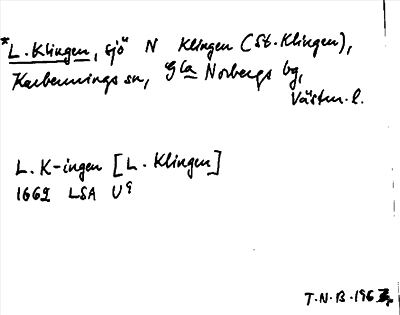 *L. Klingen, sjö N Klingen (St. Klingen),
Karbennings sn, Gla Norbergs bg,
Västm. l.
L. K-ingen [L. Klingen]
1662 LSA U9
T.N.B. 196